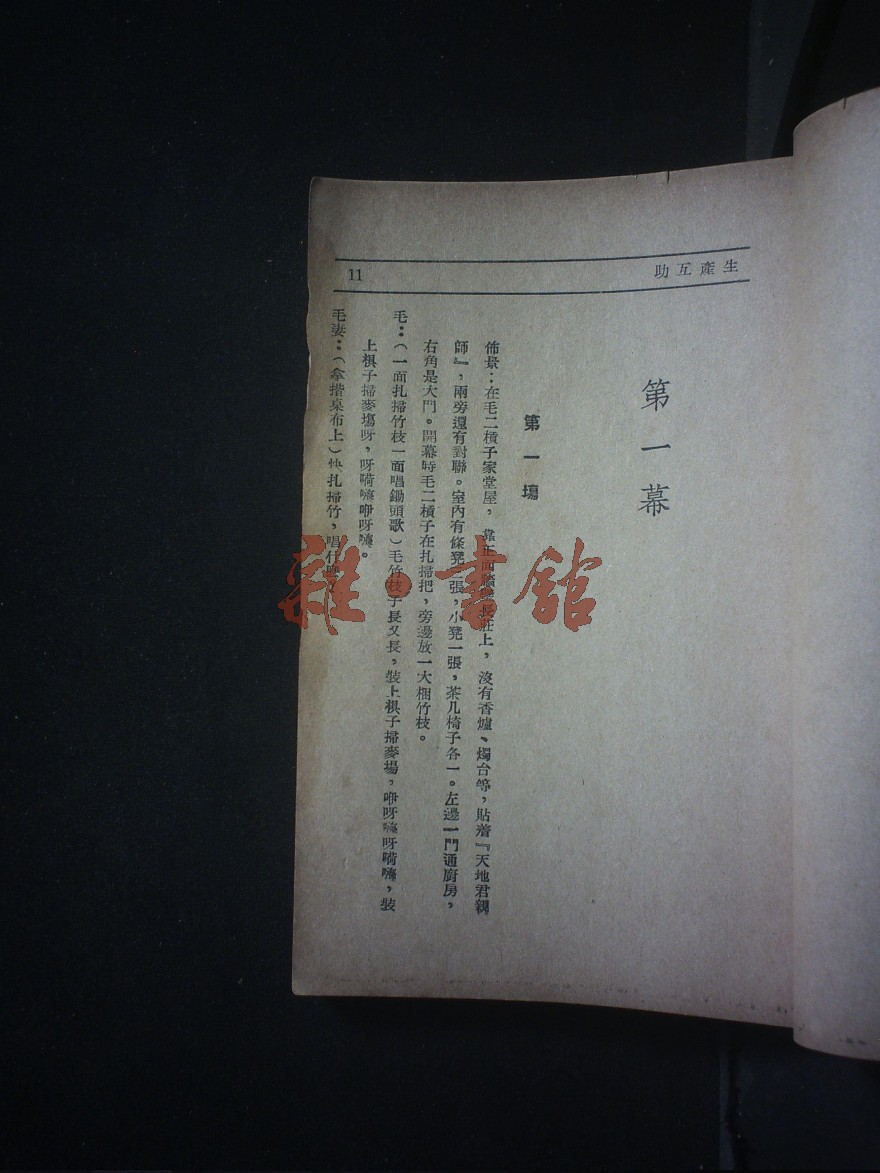 生產互助
11
第一幕
第一場
佈景：在毛二槓子家堂屋，靠正面牆 長 上，沒有香爐、燭台等，貼着『天地君親
師』，兩旁還有對聯。室內有條凳二張，小凳一張，茶几椅子各一。左邊一門通廚房，
右角是大門。開幕時毛二槓子在扎掃把，旁邊放一大梱竹枝。
毛：（一面扎掃竹枝一面唱鋤頭歌）毛竹枝子長又長，裝上棋子掃麥場，咿呀嗨呀嗬嗨，裝
上棋子掃麥塲呀，呀嗬嗨咿呀嗨。
毛妻：（拿揩桌布上）快扎掃竹，唱什
雜·書館